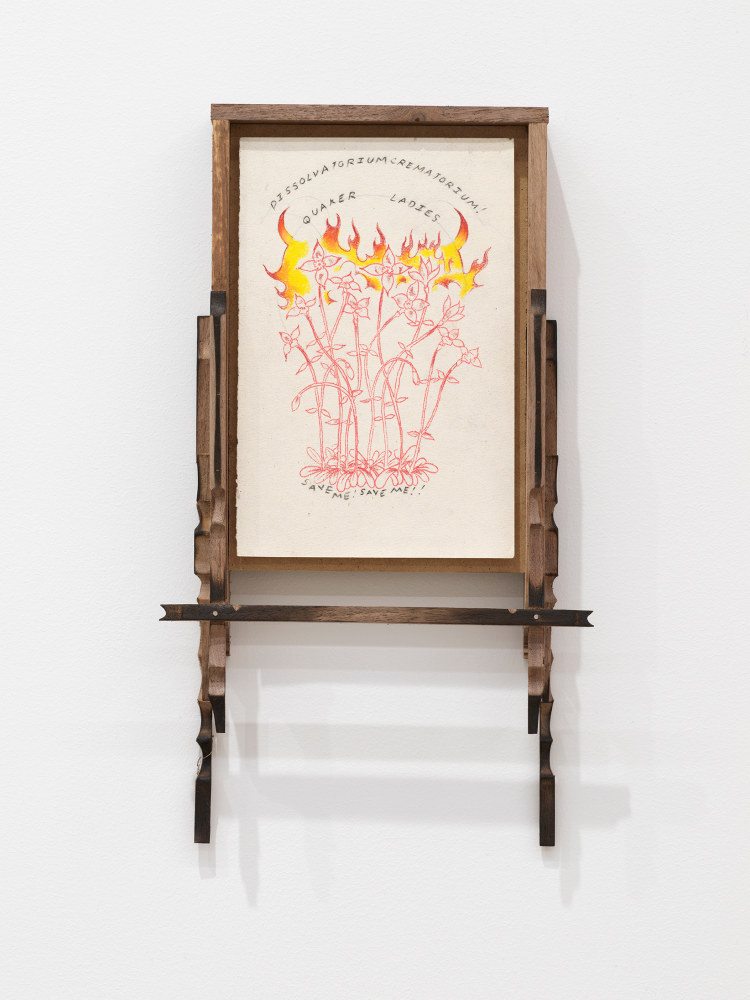 DISSOLVATORIUM CREMATORIUM!
QUAKER LADIES
SAVE ME! SAVE ME!!